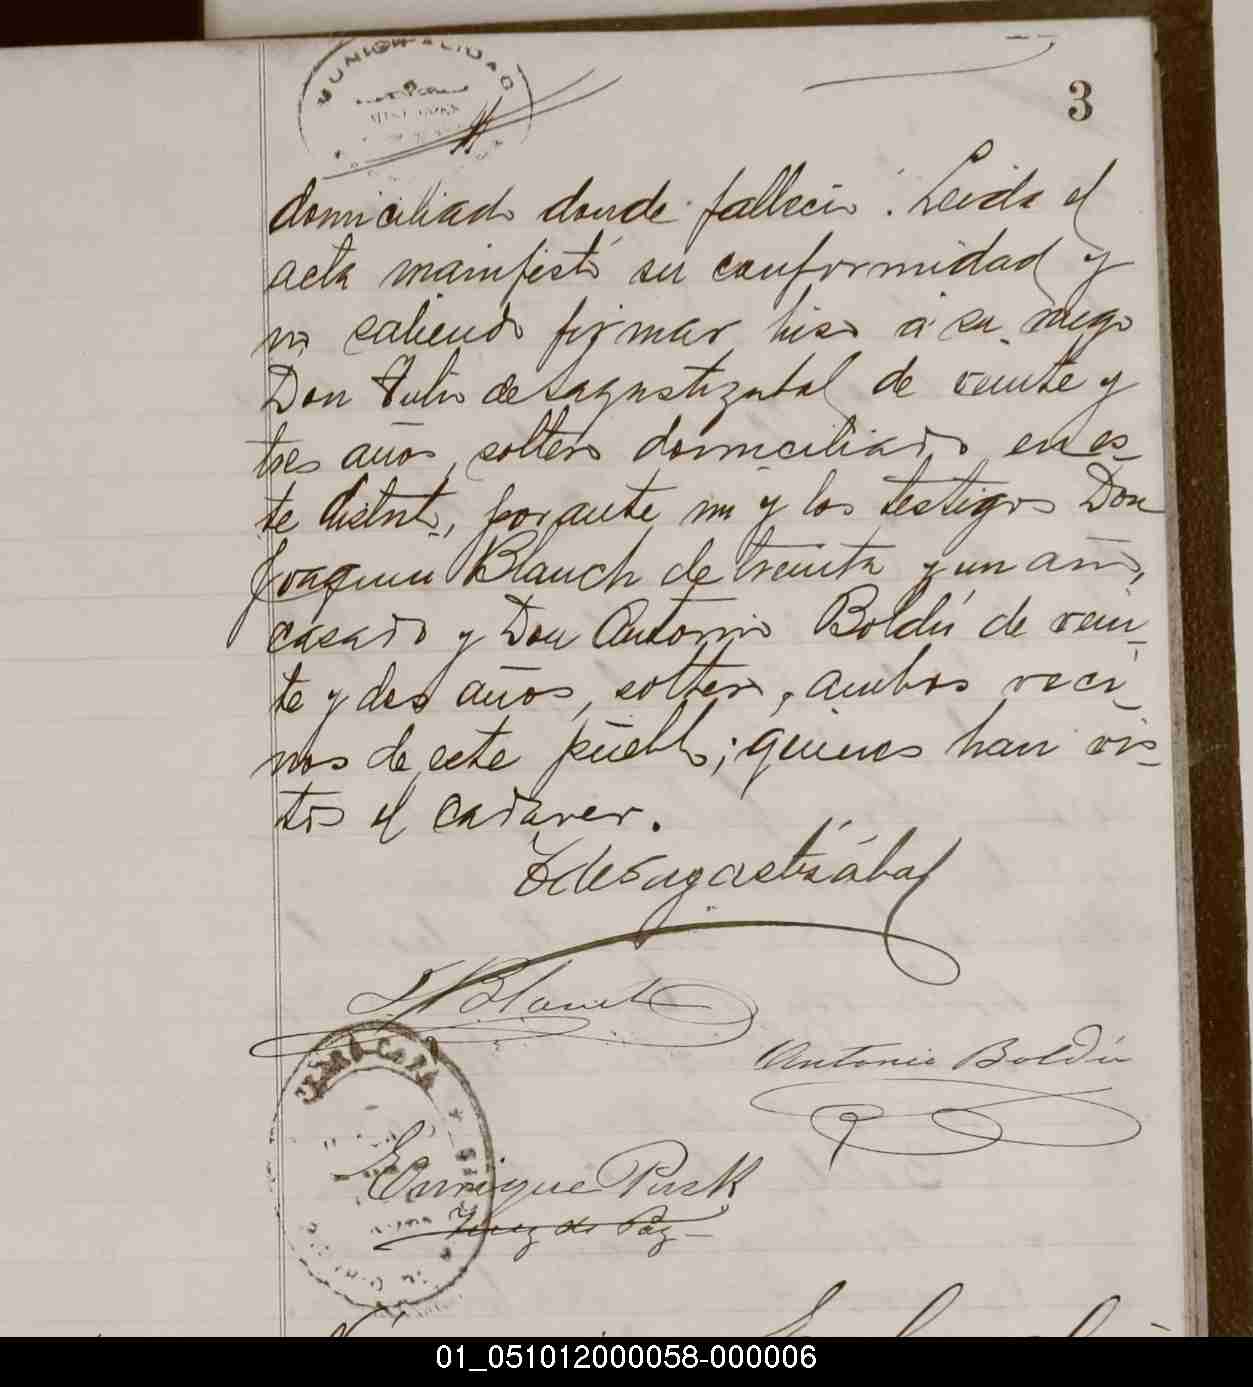 MUNICIPALIDAD
3
domiciliado donde fallecio. Leida el
acta manifestó su conformidad y
no sabiendo firmar hiso á su ruego
Don Julio de Sagastizabal de veinte y
tres años, soltero domiciliado en es-
te distrito, por ante mi y los testigos Don
Joaquin Blanch de treinta y un años,
casado y Don Antonio Boldú de vein-
te y dos años, soltero, ambos veci-
nos de este pueblo; quienes han vis-
tos el cadaver.
J de Sagastizábal
J Blanch
Antonio Boldú
Enrique Pusk
Juez de Paz
01_051012000058-000006